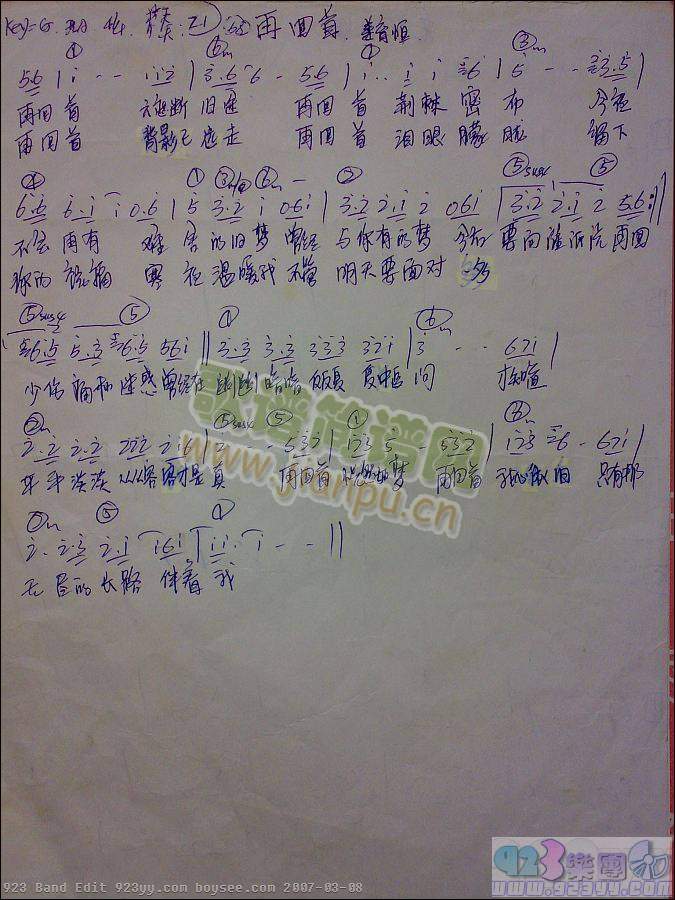 Key=G 再回首 姜育恒
① ⑥m ① ③m
56 | i · - - i i 2 | 3·6 6 - 56 | i · · i i 6 | 5 - - 3·5 |
再回首 云遮断 旧途 再回首 荆棘 密布 今夜
再回首 背影已 远走 再回首 泪眼 朦胧 留下
④ ① ③m ⑥m - ② ⑤sus4 ⑤
6·6 6·i i 0·6 | 5 3·2 i 0 6i | 3·2 2·i 2 0 6i | 3·2 2·i 2 56 :||
不会 再有 难 舍 的 旧梦 曾经 与你 有的梦 今后 要向谁诉说 再回
你的 祝福 寒 夜 温暖我 不管 明天 要面对 多
⑤sus4 ⑤ ① ⑥m
6·5 5·3 6·5 56i || 3·3 3·3 333 321 | 3 - - 621 |
少伤 痛和 迷惑 曾经在 幽幽 暗暗 反反复 复中追 问 才知道
②m ⑤sus4 ⑤ ① ⑥m
2·2 2·2 222 216 | 2 - - 532 | 123 5 - 532 | 123 6 - 621 |
平平 淡淡 从从容 容才是 真 再回首 恍然如梦 再回首 我心依旧 只有那
②m ⑤ ①
2· 2·3 2·1 i6i | i i · i - - ||
无 尽的 长路 伴着 我
歌谱简谱网
www.jianpu.cn
923 樂團
www.923yy.com
923 Band Edit 923yy.com boysee.com 2007-03-08